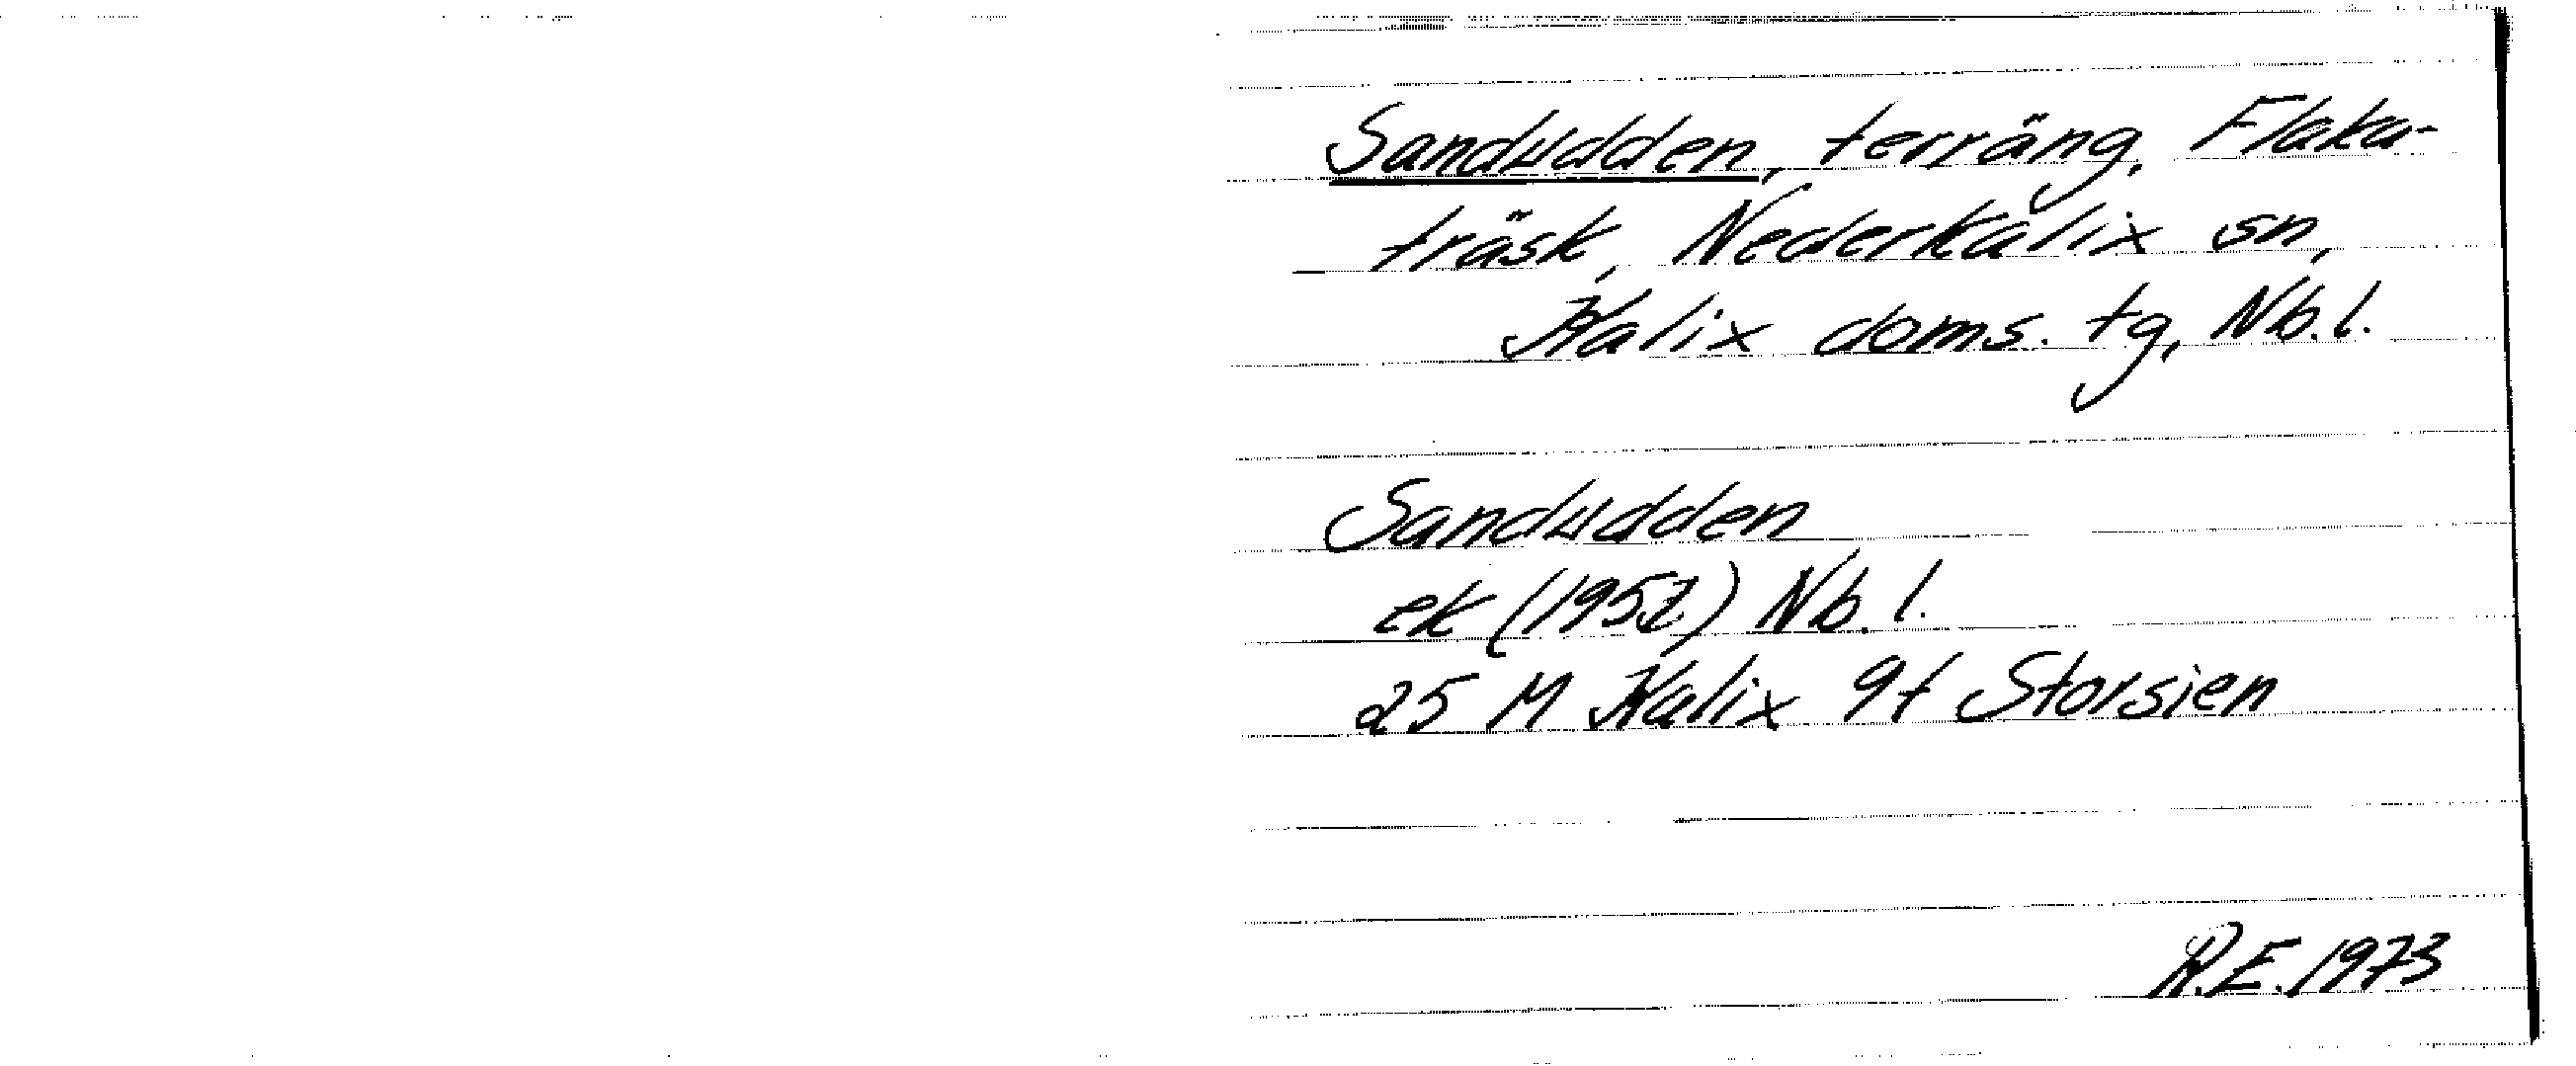 Sandudden, terräng, Flaka-
träsk, Nederkalix sn,
Kalix doms. tg, Nb.l.
Sandudden
ek (1952) Nb.l.
25 M Kalix 9f Storsien
R.E. 1973